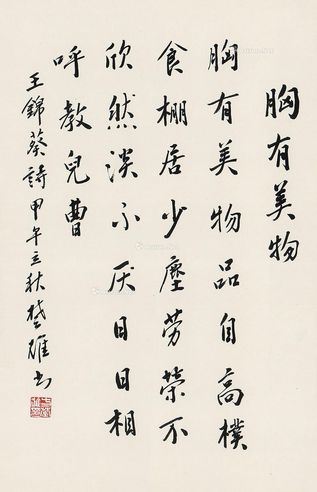 胸有美物
胸有美物品自高樸
食棚居少塵劳榮不
欣然淡不厌日日相
呼教兒曹
王錦葵詩甲午立秋楚雄书